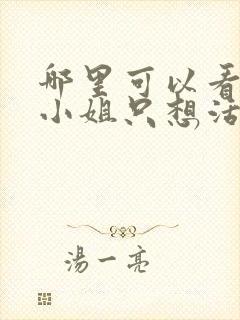 哪里可以看
小姐只想活
湯一亮